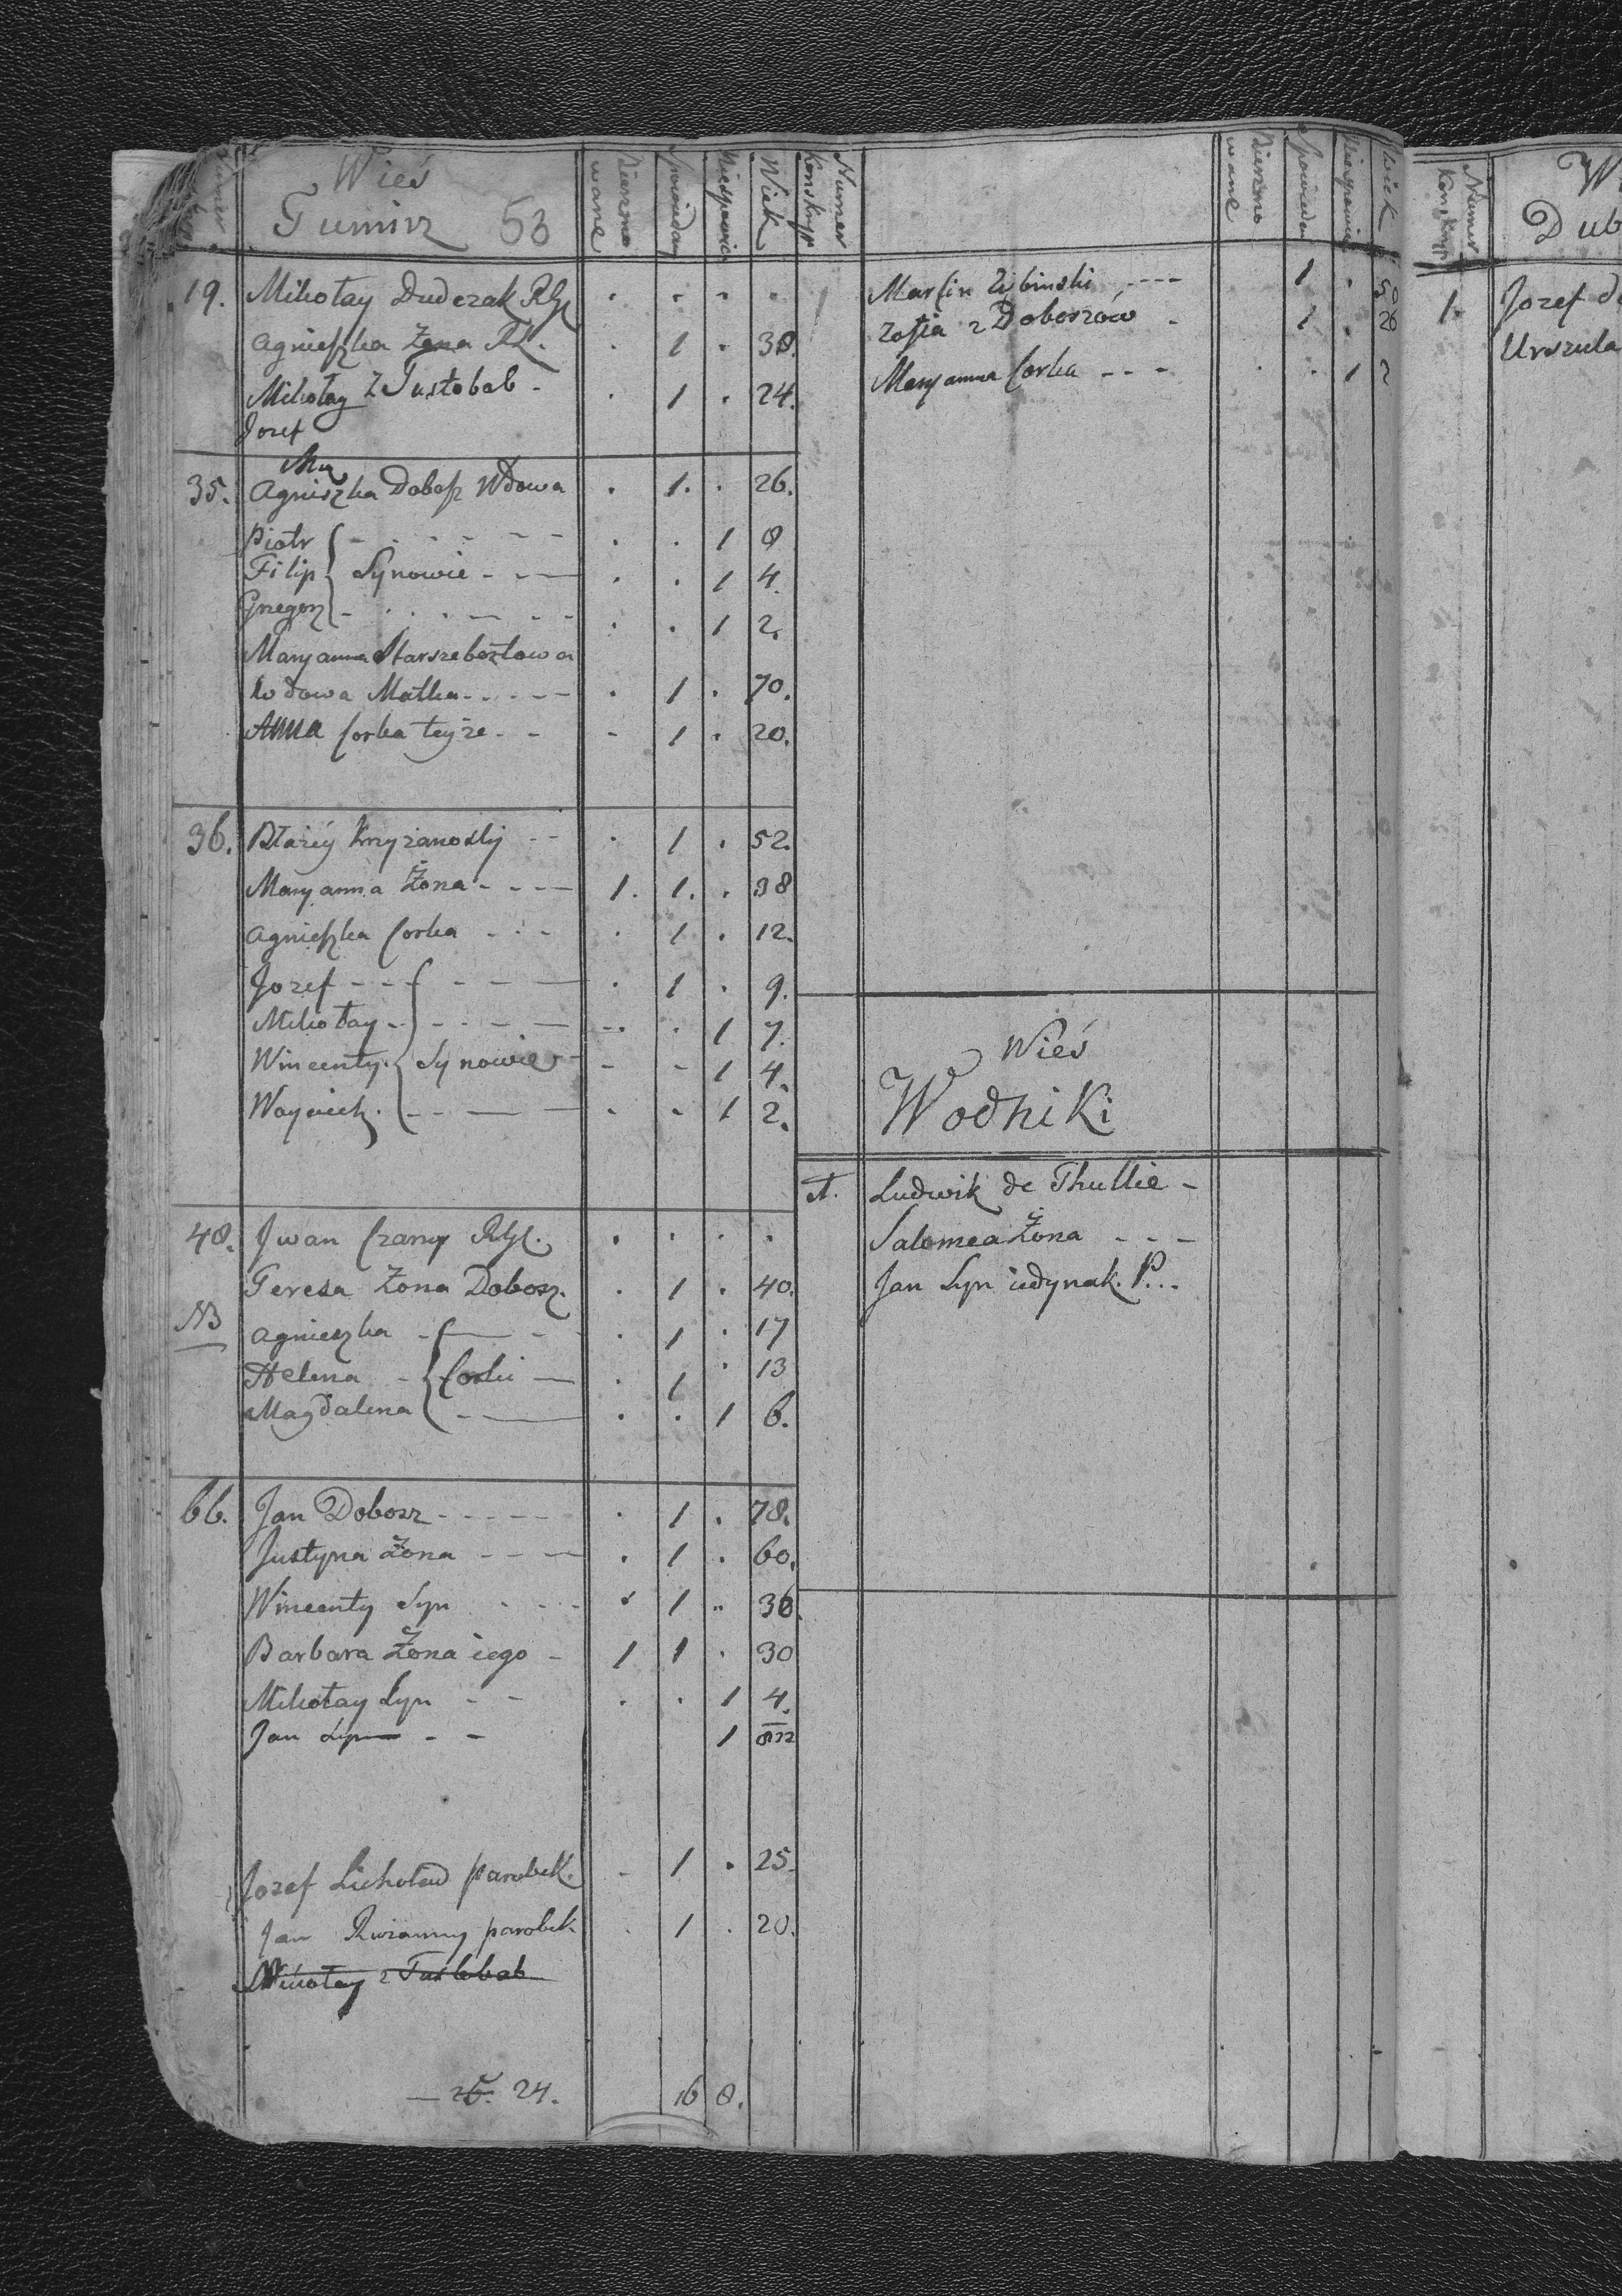 Numer
Wieś
Tumirz 53
Bierzmo
wane
Spowiedan
Niespowia
Wiek
19. Mikołay Dudczak RGl . . . .
Agnieszka Żona RŁ. . 1 . 38.
Mikołay z Tustobab - . 1 . 24.
Jozef
35. Agnieszka Dobosz Wdowa . 1. . 26.
Piotr { - . . - - - . . 1 8
Filip Synowie - - - . . 1 4.
Grzegorz - . . . - - - . . 1 2.
Maryanna Starszebosłowa
Wdowa Matka - - - - - . 1 . 70.
Anna Corka teyże - - - 1 . 20.
36. Błażey Krzyżanosky - - . 1 . 52.
Maryanna Żona - - - - 1. 1. . 38
Agnieszka Corka - - - . 1 . 12.
Jozef - - - { - - - . 1 . 9.
Mikołay - - - - - - . . 1 7.
Wincenty. Synowie - - - - 1 4.
Woyciech. - - - - . - 1 2.
48. Jwan Czarny RGl. . . . .
Teresa Żona Dobosz. . 1 . 40.
NB Agnieszka - { - - . 1 . 17
Helena - Corki - . 1 . 13
Magdalena - - . . 1 6.
66. Jan Dobosz - - - - - . 1 . 78.
Justyna Żona - - - - . 1 . 60.
Wincenty Syn - - - . 1 . 36.
Barbara Żona iego - 1 1 . 30
Mikołay Syn - - . . 1 4.
Jan Syn - - 1
Jozef Lichołew parobek. - 1 . 25.
Jan parobek . 1 . 20.
Mikołay z Tustobab
— 25. 24. 16 8.
Numer
Konskryp
Bierzmo
wane
Spowiedan
Niespowia
Wiek
Marcin Zybinski - - - - 1 . 50
Zofia z Doboszow - 1 . 26
Maryanna Corka - - - . . 1 2
Wieś
Wodniki
1. Ludwik de Thullie -
Salomea Żona - - -
Jan Syn iedynak. P...
Numer
Konskryp
W
Dub
1. Jozef
Urszula